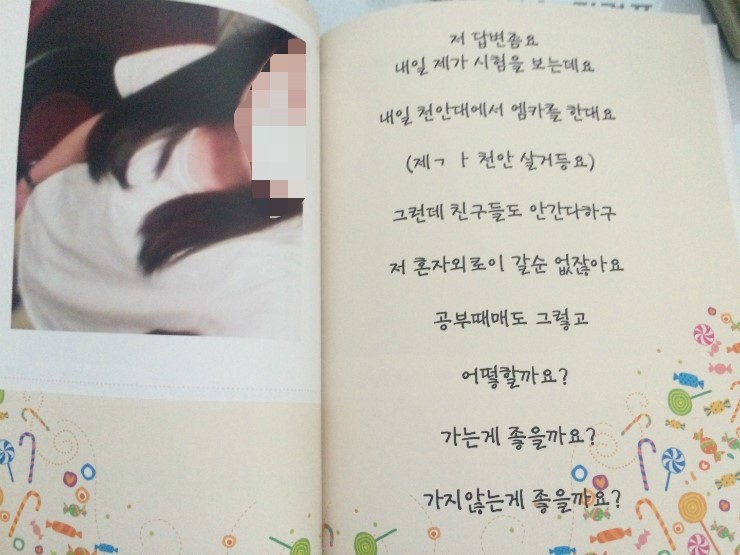 저 답변좀요
내일 제가 시험을 보는데요
내일 천안대에서 엠카를 한대요
(제ㄱ ㅏ 천안 살거등요)
그런데 친구들도 안간다하구
저 혼자외로이 갈순 없잖아요
공부때매도 그렇고
어떻할까요?
가는게 좋을까요?
가지않는게 좋을까요?